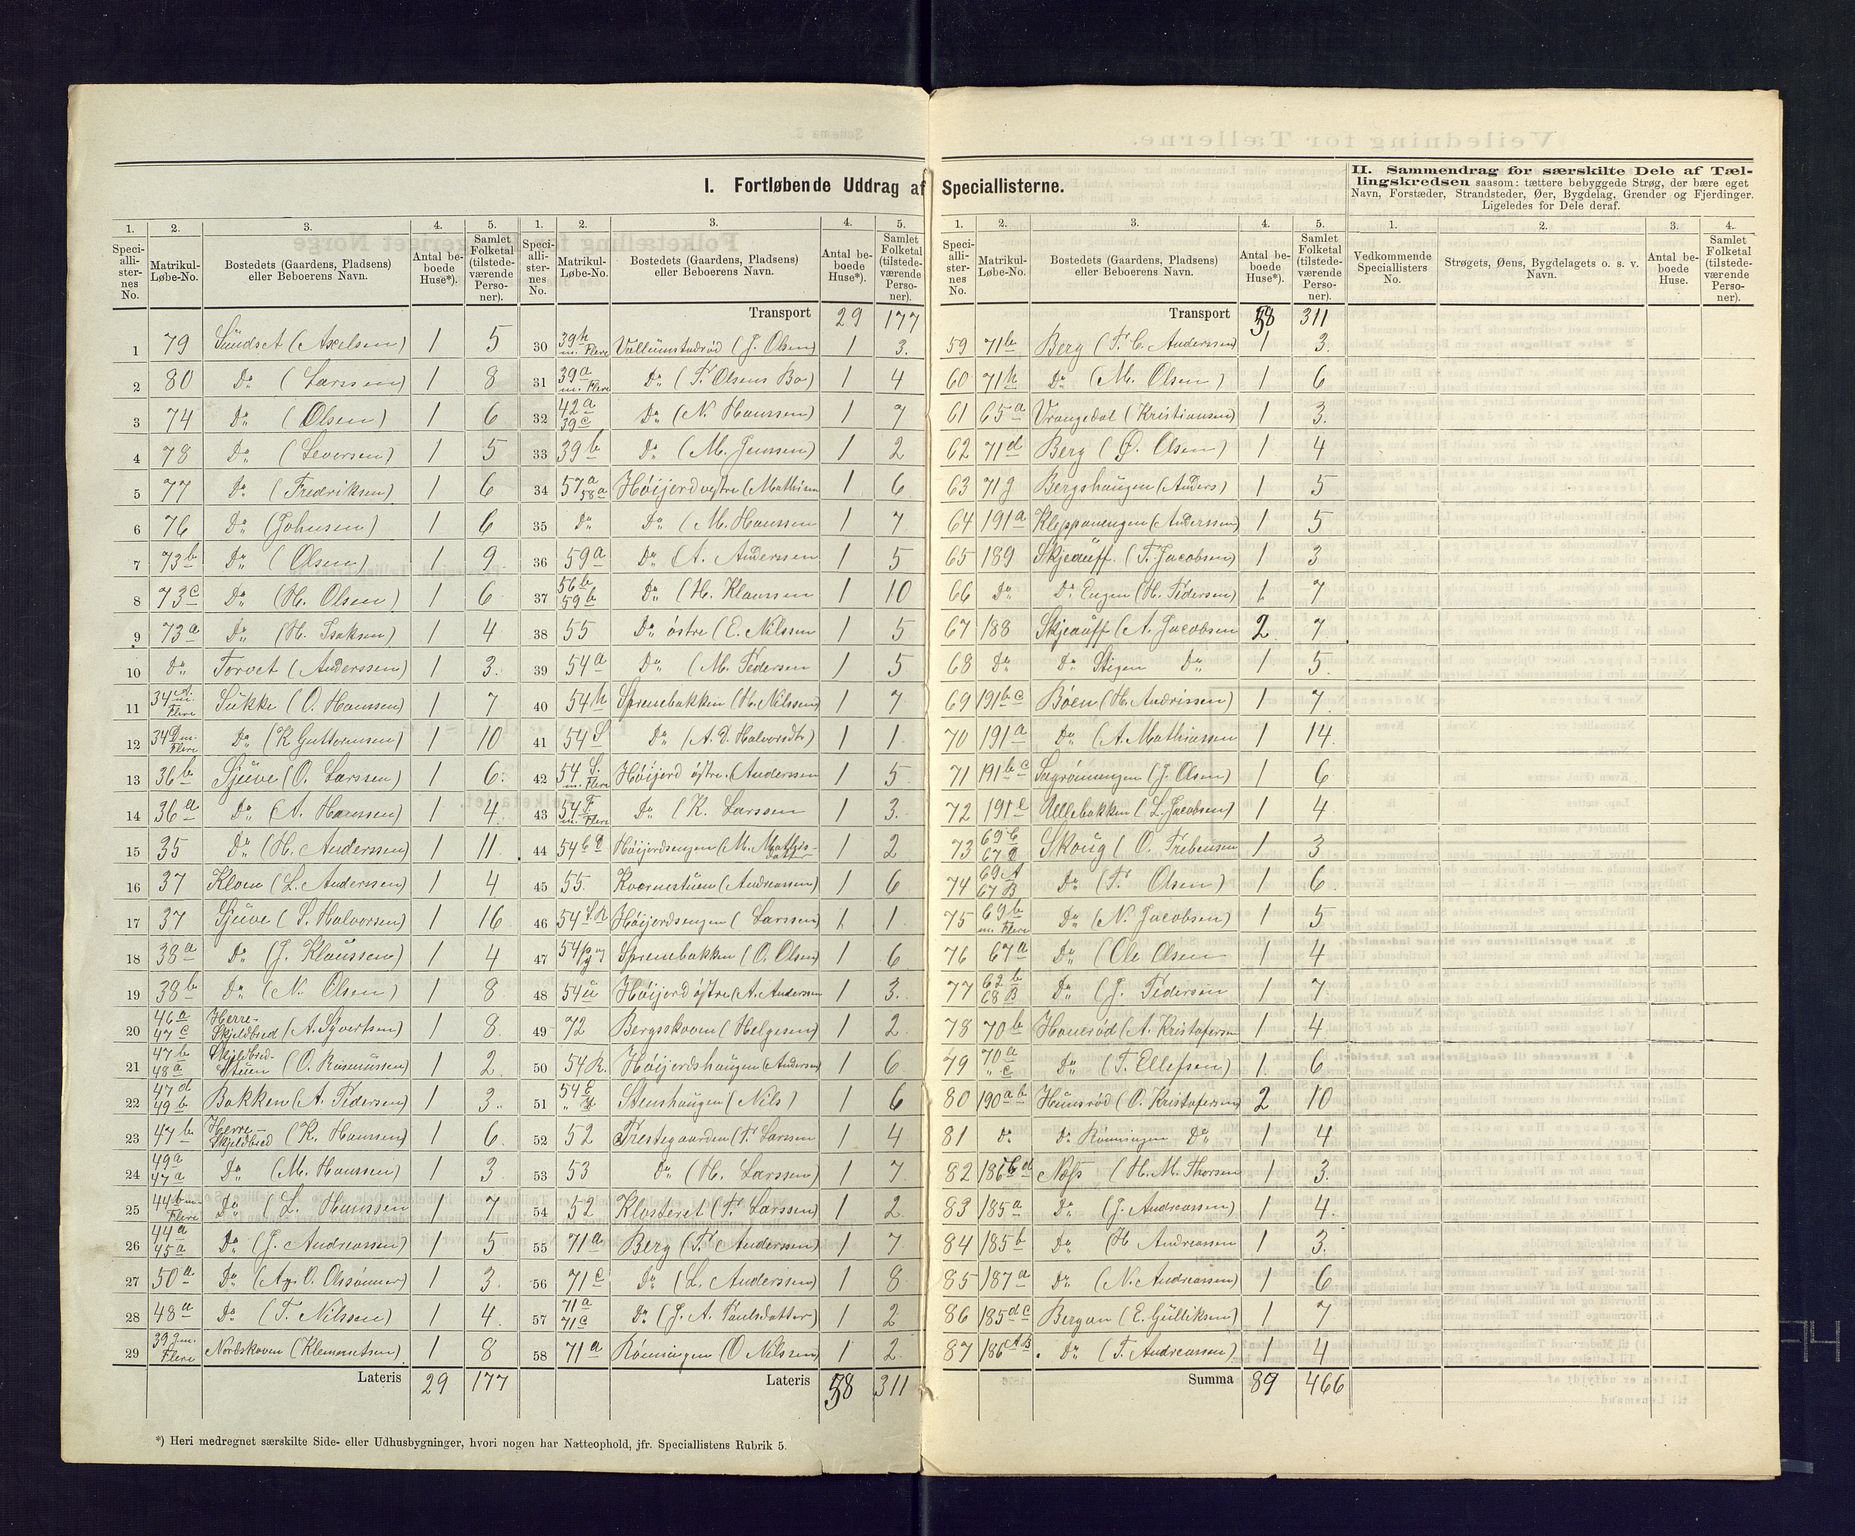 I. Fortløbende Uddrag af Speciallisterne.
II. Sammendrag for særskilte Dele af Tæl-
lingskredsen saasom: tættere bebyggede Strøg, der bære eget
Navn, Forstæder, Strandsteder, Øer, Bygdelag, Grender og Fjerdinger.
Ligeledes for Dele deraf.
1. 2. 3. 4. 5.
Speciallisternes No. Matrikul-Løbe-No. Bostedets (Gaardens, Pladsens) eller Beboerens Navn. Antal beboede Huse*). Samlet Folketal (tilstedeværende Personer).
1 79 Sundset (Axelsen) 1 5
2 80 Do (Larssen) 1 8
3 74 Do (Olsen) 1 6
4 78 Do (Seversen) 1 5
5 77 Do (Fredriksen) 1 6
6 76 Do (Johnsen) 1 6
7 73b Do (Olsen) 1 9
8 73c Do (H. Olsen) 1 6
9 73a Do (H. Isaksen) 1 4
10 Do Torvet (Anderssen) 1 3.
11 34 m. Flere Sukke (O. Hanssen) 1 7
12 34 m. Flere Do (K. Guttormsen) 1 10
13 36b Sjuve (O. Larssen) 1 6
14 36a Do (A. Hanssen) 1 4
15 35 Do (H. Anderssen) 1 11
16 37 Kloen (L. Anderssen) 1 4
17 37 Sjuve (S. Halvorsen) 1 16
18 38a Do (J. Klaussen) 1 4
19 38b Do (N. Olsen) 1 8
20 46a 47c Herre-Skjeldbred (A. Syvertsen) 1 8.
21 47b 48a Skjeldbred-Stuen (O. Rasmussen) 1 2
22 47d 49b Bakken (A. Pedersen) 1 3.
23 47b Herre-Skjeldbred (K. Hanssen) 1 6
24 49a 47a Do (M. Hanssen) 1 3
25 44b m. Flere Do (L. Hanssen 1 7
26 44a 45a Do (J. Andreassen) 1 5
27 50a Do (Olsønner) 1 3
28 48a Do (T. Nilssen) 1 4
29 39 m. Flere Nordskoven (Klemmetsen) 1 8
Lateris 29 177
1. 2. 3. 4. 5.
Speciallisternes No. Matrikul-Løbe-No. Bostedets (Gaardens, Pladsens) eller Beboerens Navn. Antal beboede Huse*). Samlet Folketal (tilstedeværende Personer).
Transport 29 177
30 39h m. Flere Vallumstadrød (J. Olsen) 1 3.
31 39a m. Flere Do (T. Olsens Bo) 1 4
32 42a 39c Do (N. Hanssen) 1 7
33 39b Do (M. Jenssen) 1 2
34 57a 58a Høijord vestre (Mathisen 1 6
35 Do Do (M. Hanssen 1 7
36 59a Do (A. Anderssen 1 5
37 56b 59b Do (H. Klaussen 1 10
38 55 Do østre (E. Nilssen 1 5
39 54a Do (M. Pedersen 1 5
40 54h Sprenebakken (H. Nilssen) 1 7
41 54S Do (A. D. Halvorsdtr) 1 1
42 54 m. Flere Høijord østre. (Anderssen 1 5
43 54 m. Flere Do (K. Larssen 1 3.
44 54 Høijordsengen (M. Mathisdatter 1 2
45 55. Kvernestuen (Andreassen) 1 6
46 54 Høijordsengen (Larssen) 1 1
47 54 Sprenebakken (O. Olsen) 1 6
48 54u Høijord østre (A. Anderssen 1 3.
49 72 Bergsskoven (Helgesen) 1 2
50 54R. Høijordshaugen (Anderssen) 1 6
51 54 Stenshaugen (Nils) 1 6
52 52 Prestegaarden (P. Larssen 1 4
53 53 Do (H. Larssen) 1 7
54 52 Klosteret (P. Larssen) 1 2
55 71a Berg (P. Anderssen) 1 7
56 71c Do (L. Anderssen) 1 8
57 71a 71c Do (J. A. Paulsdatter) 1 2
58 71a Rønningen (O Nilssen) 1 2
Lateris 58 311
1. 2. 3. 4. 5.
Speciallisternes No. Matrikul-Løbe-No. Bostedets (Gaardens, Pladsens) eller Beboerens Navn. Antal beboede Huse*). Samlet Folketal (tilstedeværende Personer).
Transport 58 311
59 71b Berg (P. C. Anderssen) 1 3.
60 71h Do (M. Olsen) 1 6
61 65a Vrangedal (Kristiansen) 1 3.
62 71d Berg (Ø. Olsen) 1 4
63 71g Bergshaugen (Anders) 1 5
64 191a Kleppanengen (Anderssen) 1 5
65 189 Skjeauff. (T. Jacobsen) 1 3
66 Do Do Engen (H. Pedersen) 1 7
67 188 Skjeauff (A. Jacobsen 2 7
68 Do Do Stigen Do 1 5
69 191bc Bøen (H. Andrissen) 1 7
70 191a Do (A. Mathiassen 1 14
71 191bc Sagrønningen (J. Olsen) 1 6
72 191c Ullebakken (L. Jacobsen) 1 4
73 69 67 Skoug (O. Prebensen 1 3
74 69A 67B Do (T. Olsen) 1 6
75 69b m. Flere Do (N. Jacobsen) 1 5
76 67a Do (Ole Olsen 1 4
77 62b 68B Do (J. Pedersen 1 7
78 70b Hanerød (A. Kristofersen 1 4
79 70a " c Do (T. Ellefsen) 1 6
80 190ab Hunsrød (O. Kristofersen) 2 10
81 Do Do Rønningen Do 1 4
82 186bd Næss (H. M. Thorsen 1 3.
83 185a Do (J. Andreassen) 1 4.
84 185b Do (H. Andreassen 1 3.
85 187a Do (N. Andreassen) 1 6
86 185dc Bergan (E. Gulliksen) 1 7
87 186AB Do (T. Andreassen) 1 4
Summa 89 466
1. 2. 3. 4.
Vedkommende Speciallisters No. Strøgets, Øens, Bygdelagets o. s. v. Navn. Antal beboede Huse. Samlet Folketal (tilstedeværende Personer).
*) Heri medregnet særskilte Side- eller Udhusbygninger, hvori nogen har Natteophold, jfr. Speciallistens Rubrik 5.